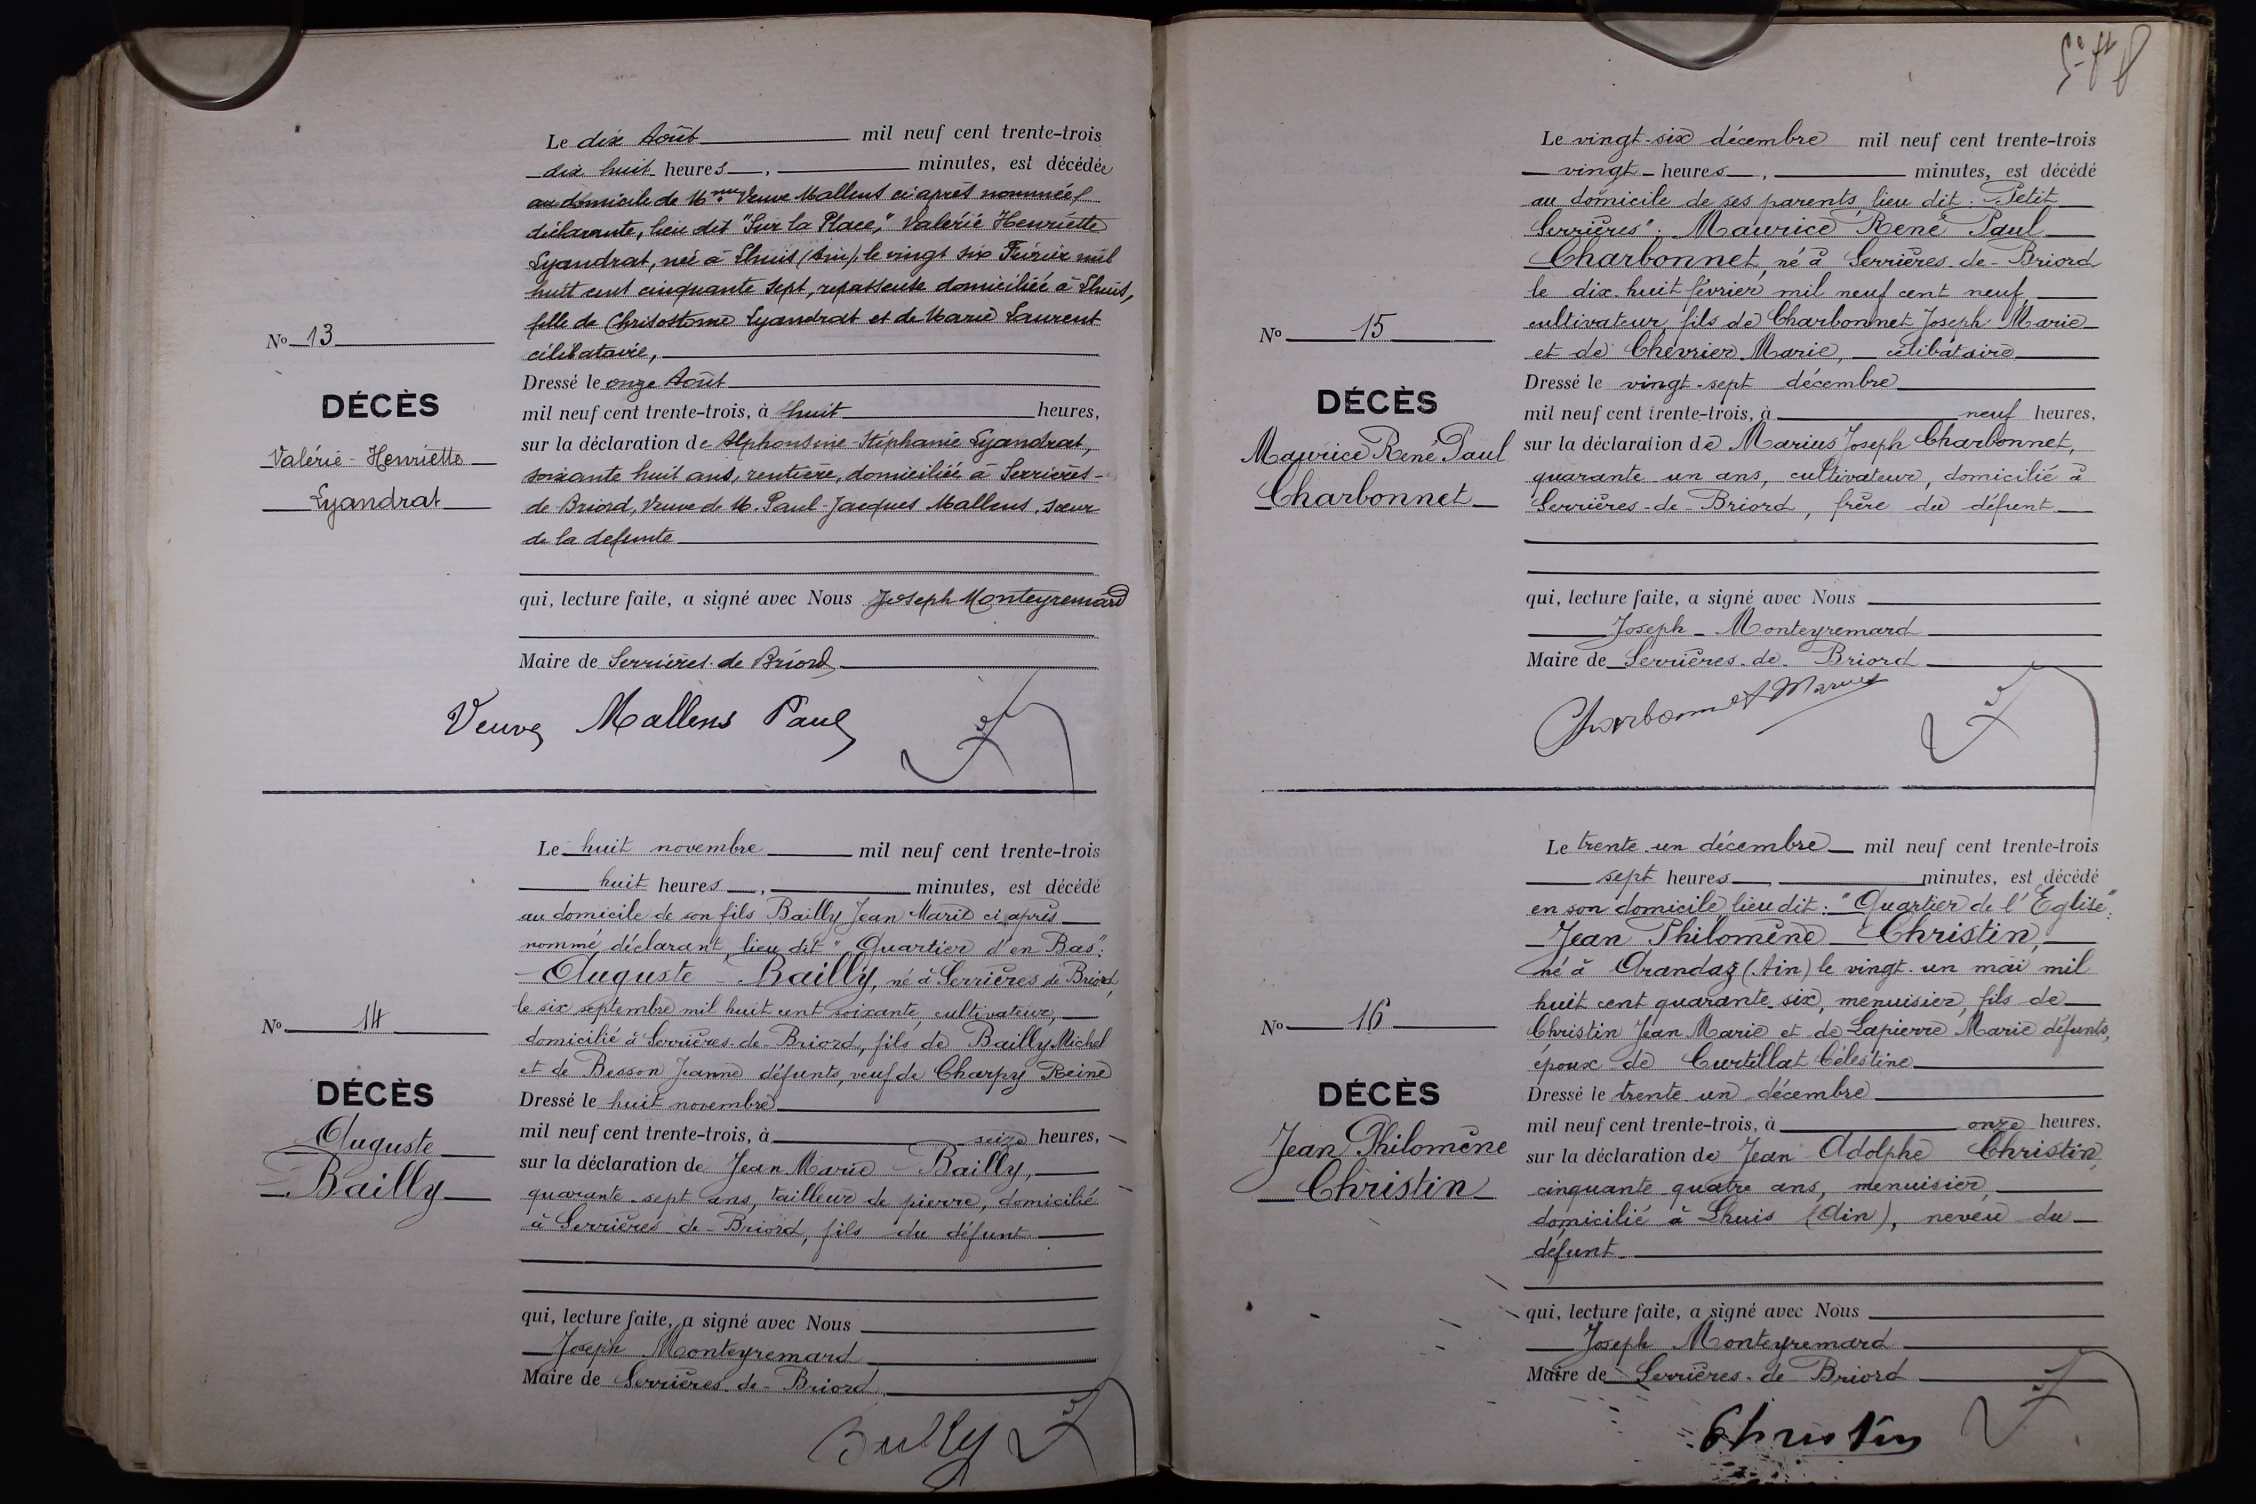 Le dix Août mil neuf cent trente-trois
dix huit heures, minutes, est décédée
au domicile de Mme Veuve Mallens ci après nommée,
déclarante, lieu dit "Sur la Place", Valérie Henriette
Lyandrat, née à Lhuis (Ain), le vingt six Février mil
huit cent cinquante sept, repasseuse domiciliée à Lhuis,
fille de Chrisostome Lyandrat et de Marie Laurent
célibataire,
Dressé le onze Août
mil neuf cent trente-trois, à huit heures,
sur la déclaration de Alphonsine-Stéphanie Lyandrat,
soixante huit ans, rentière, domiciliée à Serrières-
de Briord, Veuve de M. Paul-Jacques Mallens, sœur
de la defunte
qui, lecture faite, a signé avec Nous Joseph Monteyremard
Maire de Serrières-de Briord
Veuve Mallens Paul
No 13
DÉCÈS
Valérie-Henriette
Lyandrat
Le huit novembre mil neuf cent trente-trois
huit heures, minutes, est décédé
au domicile de son fils Bailly Jean Marie ci après
nommé déclarant, lieu dit "Quartier d'en Bas":
Auguste Bailly, né à Serrières de Briord,
le six septembre mil huit cent soixante, cultivateur,
domicilié à Serrières-de-Briord, fils de Bailly Michel
et de Besson Jeanne défunts, veuf de Charpy Reine
Dressé le huit novembre
mil neuf cent trente-trois, à seize heures,
sur la déclaration de Jean Marie Bailly,
quarante-sept ans, tailleur de pierre, domicilié
à Serrières-de-Briord, fils du défunt
qui, lecture faite, a signé avec Nous
Joseph Monteyremard
Maire de Serrières-de-Briord
Bailly
No 14
DÉCÈS
Auguste
Bailly
Le vingt-six décembre mil neuf cent trente-trois
vingt heures, minutes, est décédé
au domicile de ses parents, lieu dit: "Petit
Serrières": Maurice René Paul
Charbonnet, né à Serrières-de-Briord
le dix-huit février mil neuf cent neuf,
cultivateur, fils de Charbonnet Joseph Marie
et de Chevrier Marie, célibataire
Dressé le vingt-sept décembre
mil neuf cent trente-trois, à neuf heures,
sur la déclaration de Marius Joseph Charbonnet,
quarante un ans, cultivateur, domicilié à
Serrières-de-Briord, frère du défunt
qui, lecture faite, a signé avec Nous
Joseph Monteyremard
Maire de Serrières-de-Briord
Charbonnet Marius
No 15
DÉCÈS
Maurice René Paul
Charbonnet
Le trente un décembre mil neuf cent trente-trois
sept heures, minutes, est décédé
en son domicile lieu dit: "Quartier de l'Eglise":
Jean Philomène Christin,
né à Arandaz (Ain) le vingt-un mai mil
huit cent quarante-six, menuisier, fils de
Christin Jean Marie et de Lapierre Marie défunts,
époux de Curtillat Célestine
Dressé le trente un décembre
mil neuf cent trente-trois, à onze heures,
sur la déclaration de Jean Adolphe Christin,
cinquante quatre ans, menuisier,
domicilié à Lhuis (Ain), neveu du
défunt
qui, lecture faite, a signé avec Nous
Joseph Monteyremard
Maire de Serrières-de-Briord
Christin
No 16
DÉCÈS
Jean Philomène
Christin